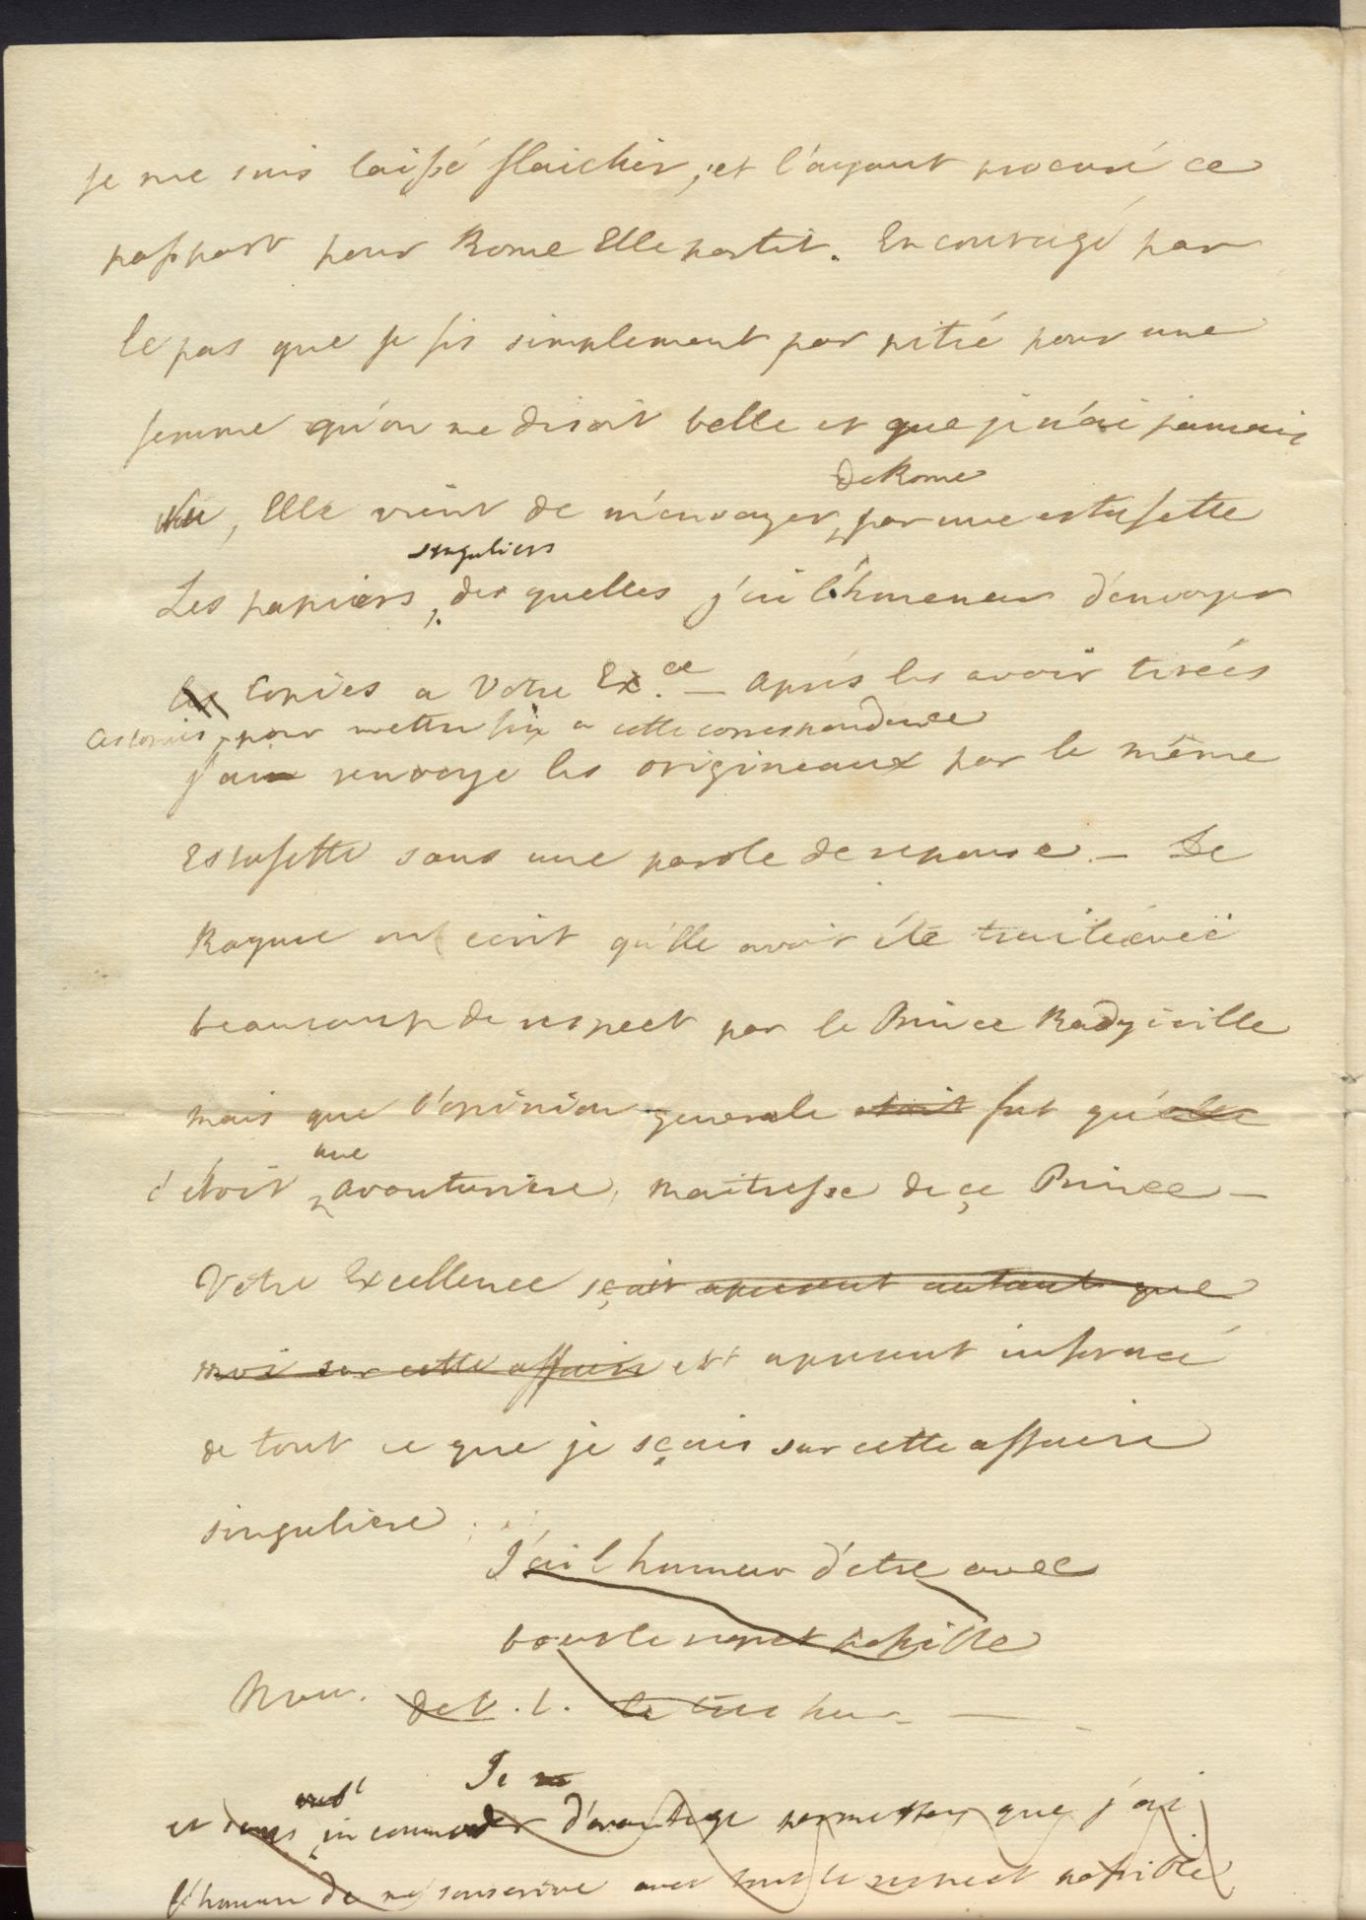 je me suis laissé flaichir, et l'ayant procuré ce
passport pour Rome Elle partit. Encouragé par
le pas que je fis simplement par pitié pour une
femme qu'on me disoit belle et que je n'ai jamais
vu, Elle vient de m'envoyer par une estafette
de Rome
singuliers
Les papiers, des quelles j'ai l'honneur d'envoyer
les Copies a Votre Ex.ce — après les avoir tirées
pour mettre fin a cette correspondence
j'ai renvoyé les origineaux par le même
Estafette sans une parole de reponse — De
Raguse on ecrit qu'elle avoit été traité avec
beaucoup de respect par le Prince Radziville
mais que l'opinion generale etoit fut qu'elle
une
c'étoit avanturiere, maitresse de ce Prince —
Votre Excellence sçait apresent autant que
moi sur cette affaire est apresent informé
de tout ce que je sçais sur cette affaire
singuliere
J'ai l'honneur d'etre avec
tout le respect possible
de V. E. le tres hum
Je ne
et sans incommoder d'avantage permetter que j'ai
l'honneur de me souscrire avec tout le respect possible